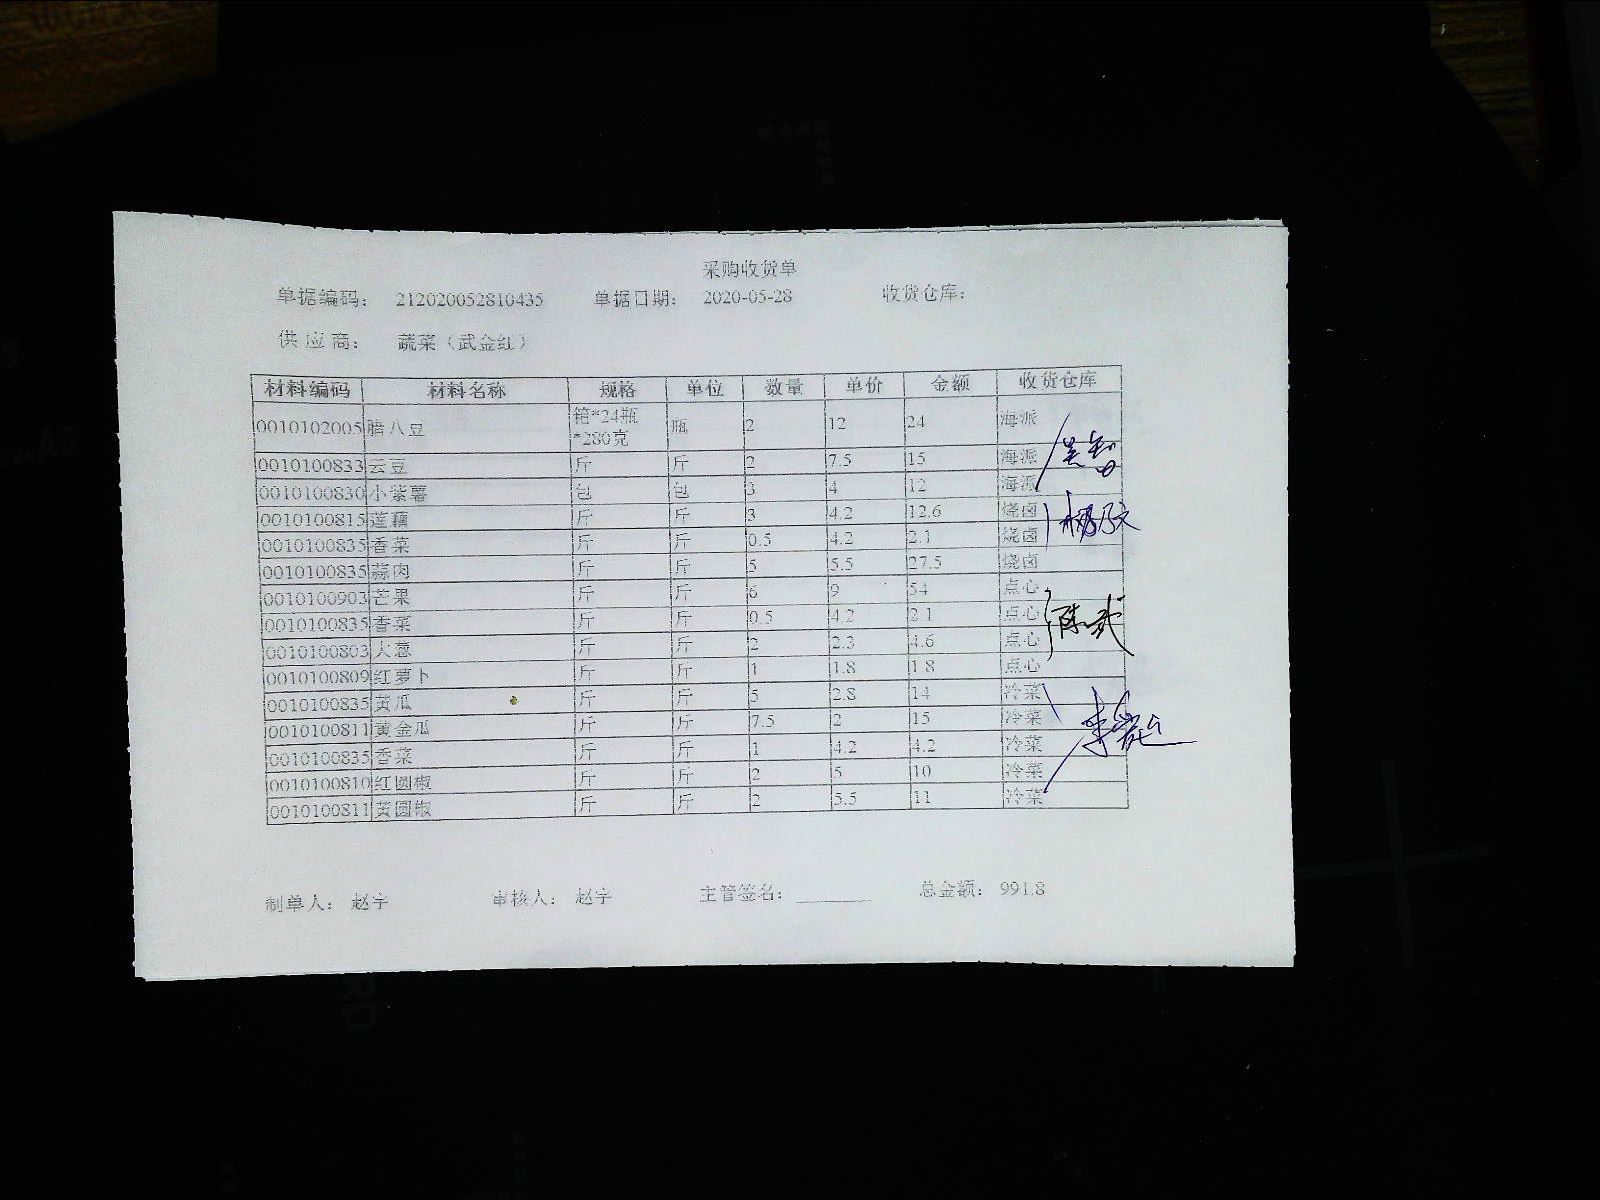 采购收货单
单据编码： 212020052810435 单据日期： 2020-05-28 收货仓库：
供 应 商： 蔬菜（武金红）
材料编码 材料名称 规格 单位 数量 单价 金额 收货仓库
0010102005 腊八豆 箱*24瓶*280克 瓶 2 12 24 海派
0010100833 云豆 斤 斤 2 7.5 15 海派
0010100830 小紫薯 包 包 3 4 12 海派
0010100815 莲藕 斤 斤 3 4.2 12.6 烧卤
0010100835 香菜 斤 斤 0.5 4.2 2.1 烧卤
0010100835 蒜肉 斤 斤 5 5.5 27.5 烧卤
0010100903 芒果 斤 斤 6 9 54 点心
0010100835 香菜 斤 斤 0.5 4.2 2.1 点心
0010100803 大葱 斤 斤 2 2.3 4.6 点心
0010100809 红萝卜 斤 斤 1 1.8 1.8 点心
0010100835 黄瓜 斤 斤 5 2.8 14 冷菜
0010100811 黄金瓜 斤 斤 7.5 2 15 冷菜
0010100835 香菜 斤 斤 1 4.2 4.2 冷菜
0010100810 红圆椒 斤 斤 2 5 10 冷菜
0010100811 黄圆椒 斤 斤 2 5.5 11 冷菜
制单人： 赵宇 审核人： 赵宇 主管签名： 总金额： 991.8